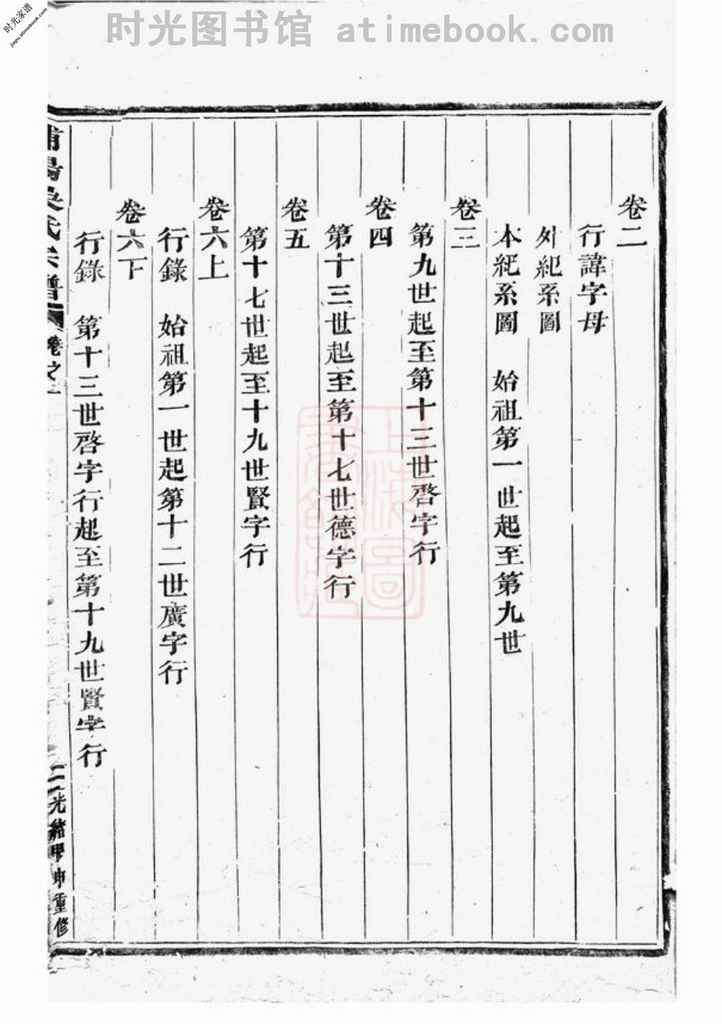 时光图书馆 atimebook.com
时光家谱
jiapu.atimebook.com
卷二
行諱字母
外紀系圖
本紀系圖 始祖第一世起至第九世
卷三
第九世起至第十三世啓字行
卷四
第十三世起至第十七世德字行
卷五
第十七世起至十九世賢字行
卷六上
行錄 始祖第一世起第十二世廣字行
卷六下
行錄 第十三世啓字行起至第十九世賢字行
浦陽吳氏宗譜 卷之一 二 光緒甲申重修